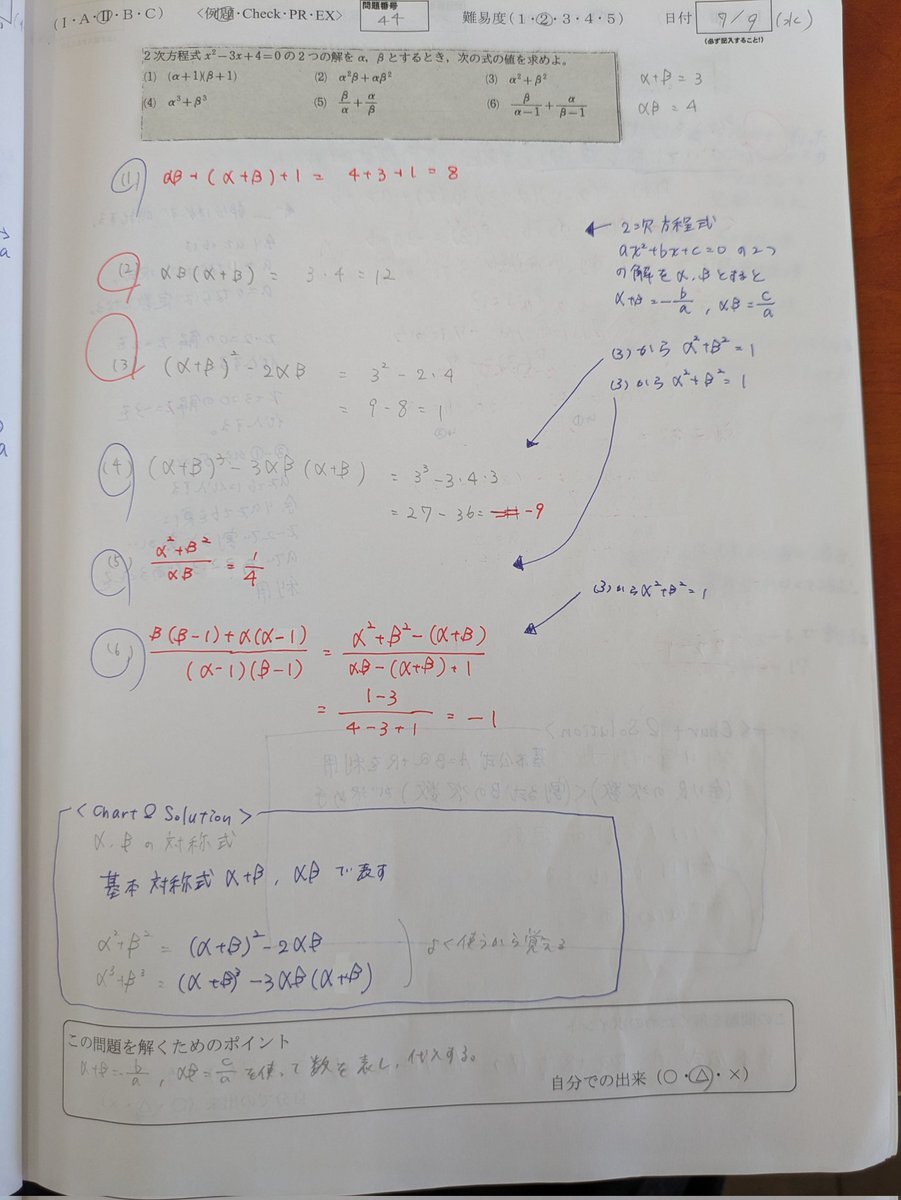 (I・A・Ⅱ・B・C) 〈例題・Check・PR・EX〉 問題番号 44 難易度(1・②・3・4・5) 日付 9/9 (水)
(必ず記入すること!)
2次方程式 x²−3x+4=0 の2つの解を α, β とするとき，次の式の値を求めよ。
(1) (α+1)(β+1) (2) α²β+αβ² (3) α²+β²
(4) α³+β³ (5) β/α + α/β (6) β/(α−1) + α/(β−1)
α+β = 3
αβ = 4
(1) αβ+(α+β)+1 = 4+3+1 = 8
2次方程式
ax²+bx+c=0 の2つ
の解を α, β とすると
α+β = −b/a , αβ = c/a
(2) αβ(α+β) = 3・4 = 12
(3) (α+β)² − 2αβ = 3² − 2・4
= 9 − 8 = 1
(3)から α²+β² = 1
(3)から α²+β² = 1
(4) (α+β)³ − 3αβ(α+β) = 3³ − 3・4・3
= 27 − 36 = −9
(5) (α²+β²)/(αβ) = 1/4
(3)から α²+β² = 1
(6) (β(β−1)+α(α−1))/((α−1)(β−1)) = (α²+β²−(α+β))/(αβ−(α+β)+1)
= (1−3)/(4−3+1) = −1
<Chart & Solution>
α, β の対称式
基本対称式 α+β , αβ で表す
α²+β² = (α+β)² − 2αβ
α³+β³ = (α+β)³ − 3αβ(α+β)
よく使うから覚える
この問題を解くためのポイント
α+β = −b/a , αβ = c/a を使って数を表し、代入する。
自分での出来 (○・△・×)